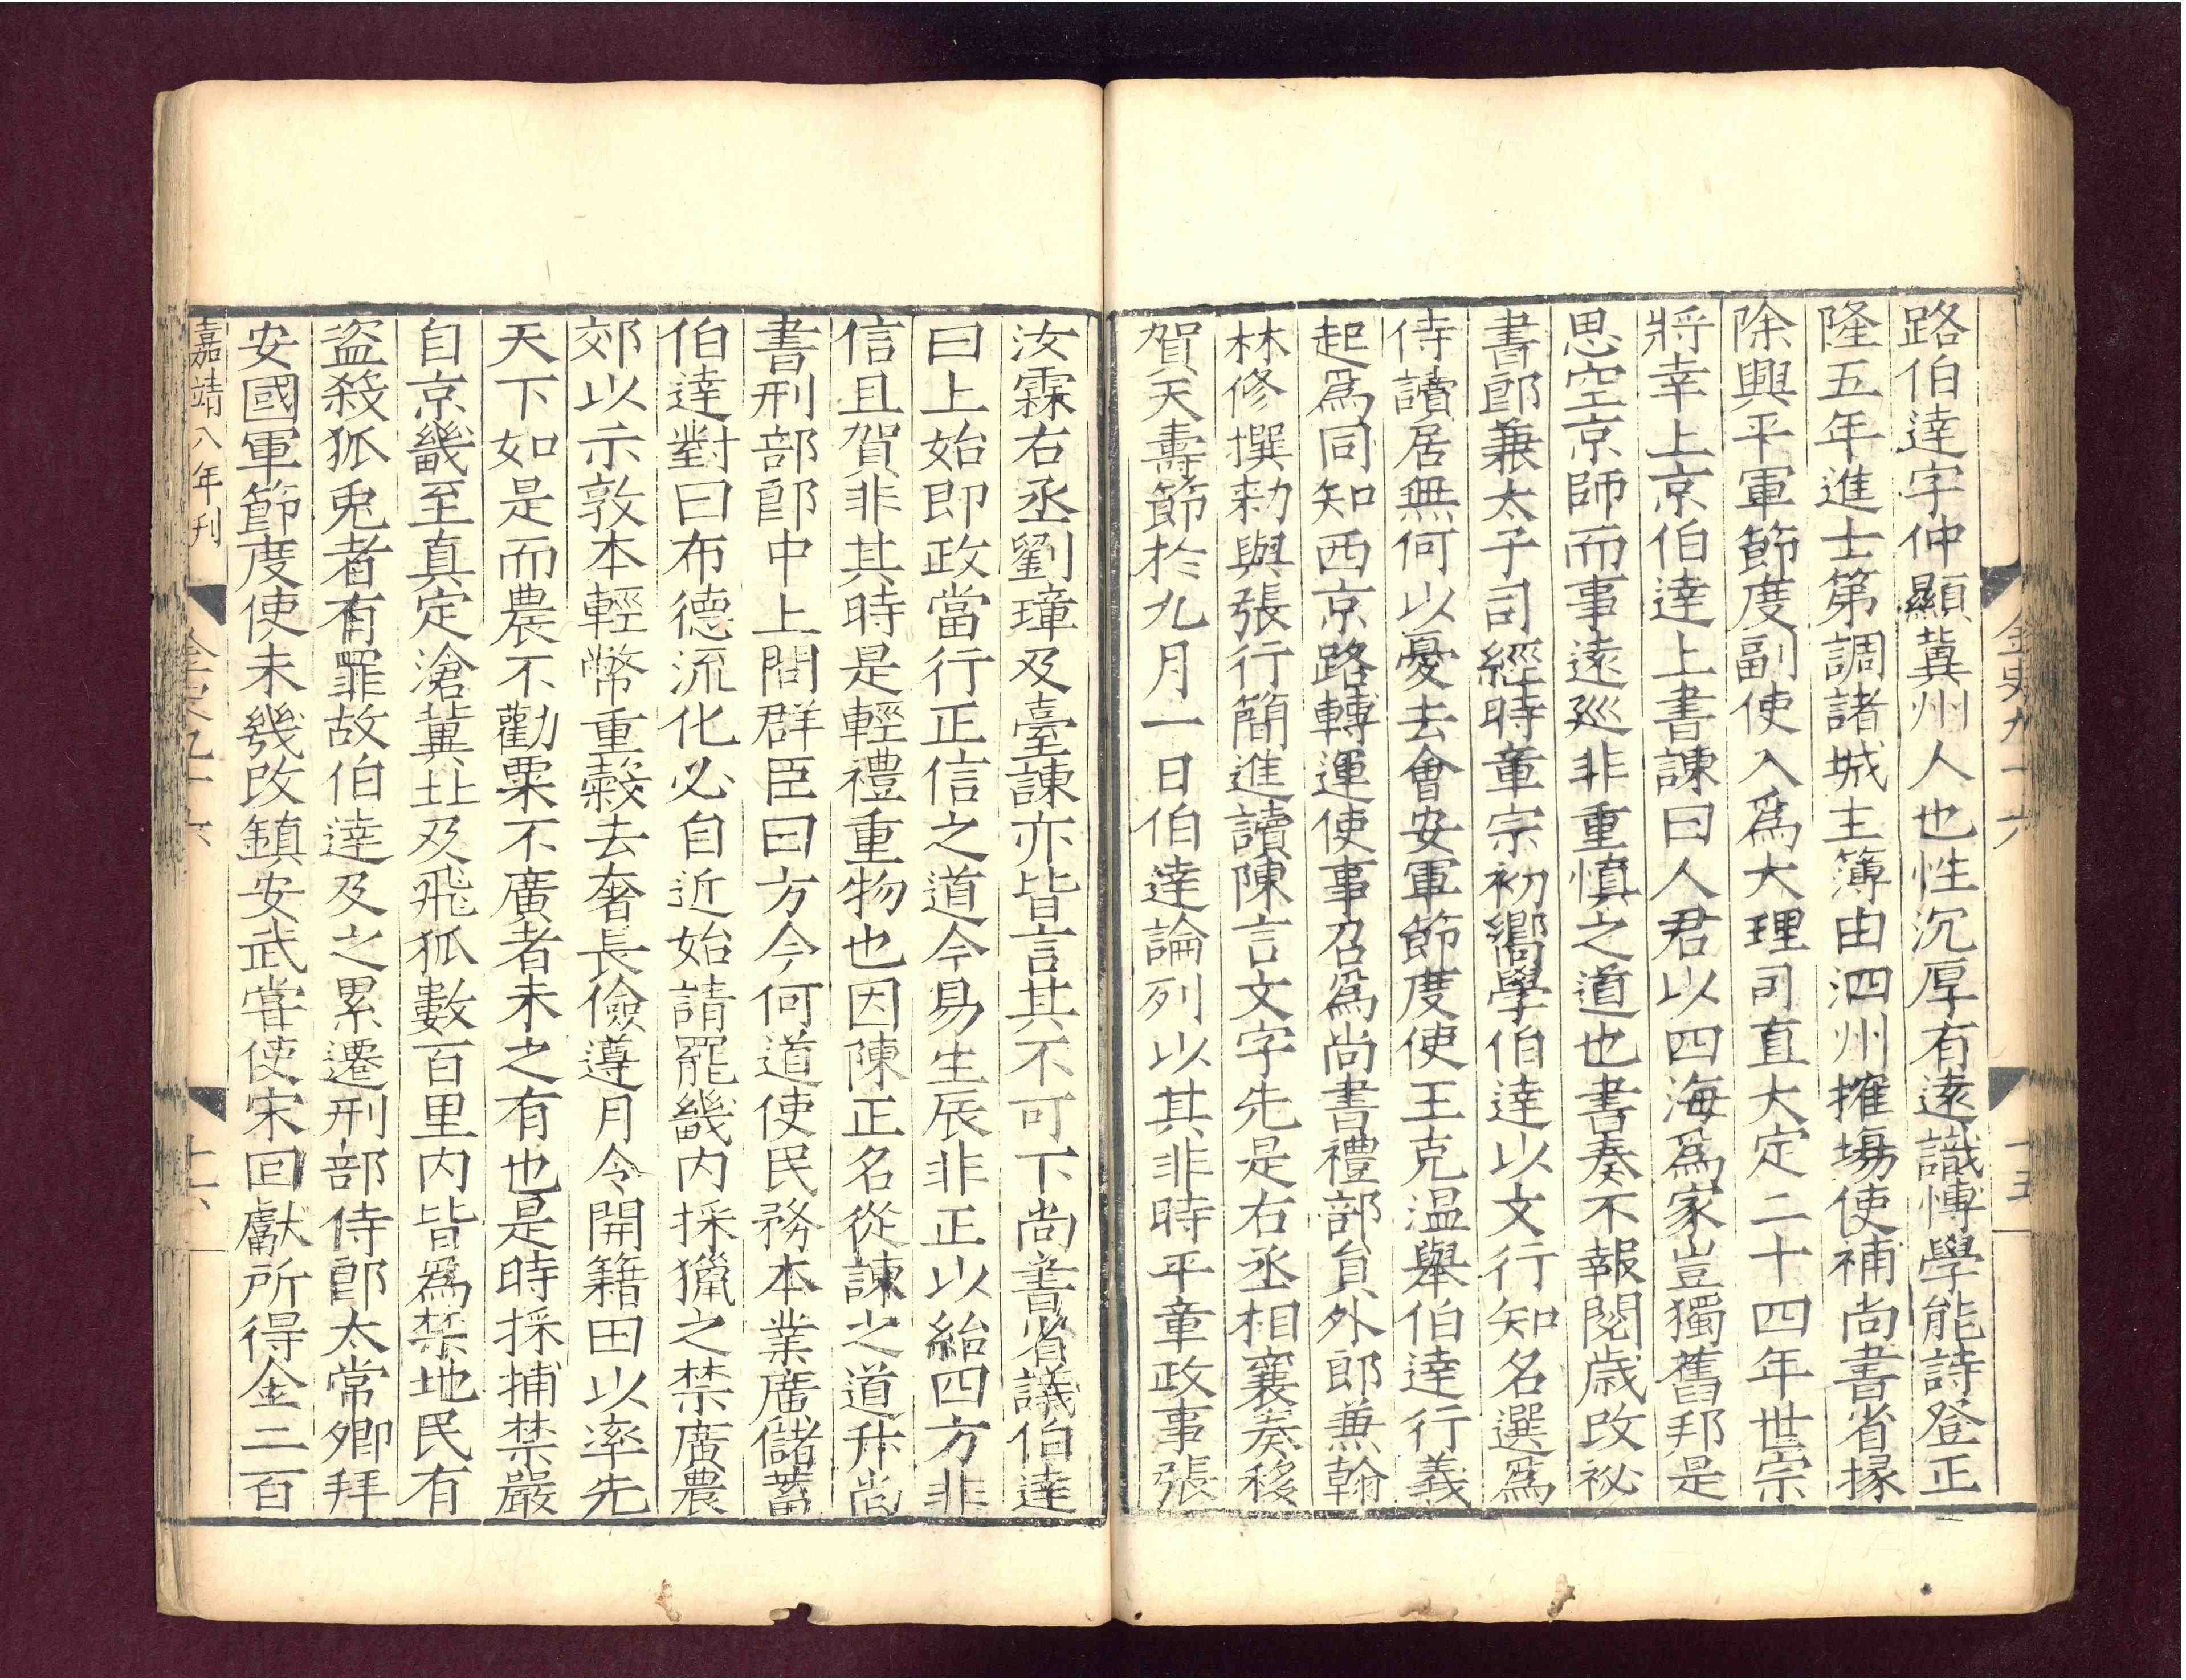 金史九十六
十五
路伯達字仲顯冀州人也性沉厚有遠識愽學能詩登正
隆五年進士第調諸城主簿由泗州搉塲使補尚書省掾
除興平軍節度副使入爲大理司直大定二十四年世宗
將幸上京伯達上書諫曰人君以四海爲家豈獨舊邦是
思空京師而事遠廵非重慎之道也書奏不報閱歲改祕
書郎兼太子司經時章宗初嚮學伯達以文行知名選爲
侍讀居無何以憂去會安軍節度使王克温舉伯達行義
起爲同知西京路轉運使事召爲尚書禮部員外郎兼翰
林修撰勑與張行簡進讀陳言文字先是右丞相襄奏移
賀天壽節於九月一日伯達論列以其非時平章政事張
汝霖右丞劉瑋及臺諫亦皆言其不可下尚書省議伯達
曰上始即政當行正信之道今易生辰非正以紿四方非
信且賀非其時是輕禮重物也因陳正名從諫之道升尚
書刑部郎中上問群臣曰方今何道使民務本業廣儲蓄
伯達對曰布德流化必自近始請罷畿内採獵之禁廣農
郊以示敦本輕幣重榖去奢長儉遵月令開籍田以率先
天下如是而農不勸粟不廣者未之有也是時採捕禁嚴
自京畿至真定滄冀北及飛狐數百里内皆爲禁地民有
盜殺狐兎者有罪故伯達及之累遷刑部侍郎太常卿拜
安國軍節度使未幾改鎮安武嘗使宋回獻所得金二百
嘉靖八年刊
金史九十六
十六